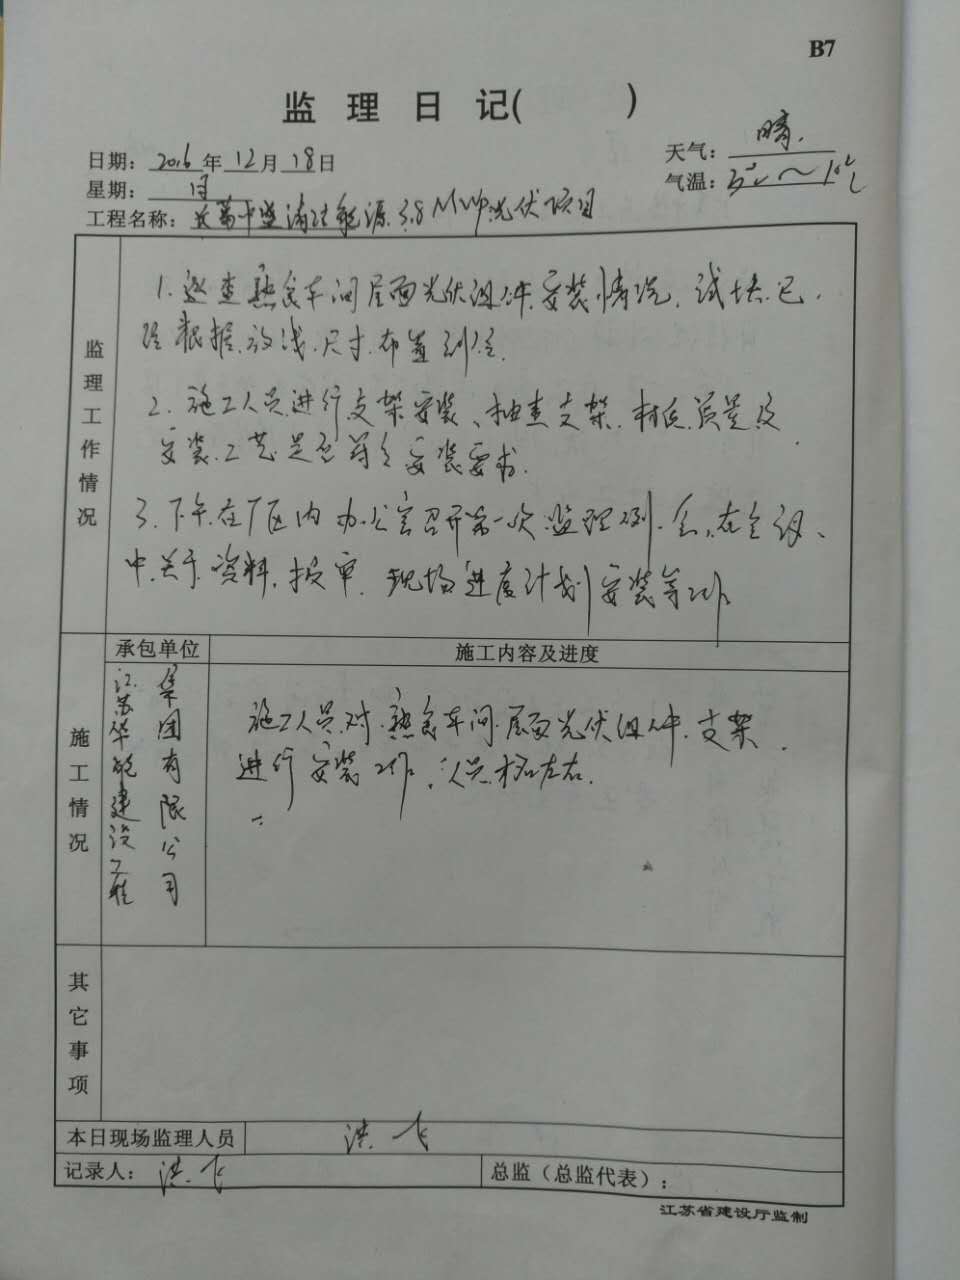 B7
监理日记( )
日期：2016年12月18日
天气：晴.
星期：日
气温：5℃～10℃
工程名称：中盛清洁能源3.8MWp光伏项目
监理工作情况
1.巡查熟食车间屋面光伏组件安装情况.试块已.
根据.放线.尺寸.布置到位.
2.施工人员进行支架安装、抽查支架.材质.质量及.
安装.工艺是否符合安装要求.
3.下午在厂区内办公室召开第一次监理例会,在会议、
中关于资料.报审.现场进度计划安装等工作
施工情况
承包单位
施工内容及进度
江苏华能建设工程
集团有限公司
施工人员对.熟食车间.屋面光伏组件.支架.
进行安装工作,人员左右.
其它事项
本日现场监理人员 洪飞
记录人：洪飞
总监（总监代表）：
江苏省建设厅监制